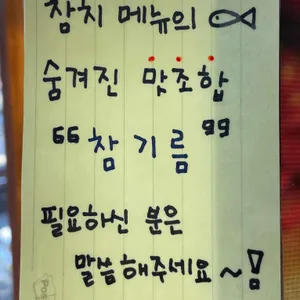 참치 메뉴의
숨겨진 맛조합
“참기름”
필요하신 분은
말씀해주세요~!